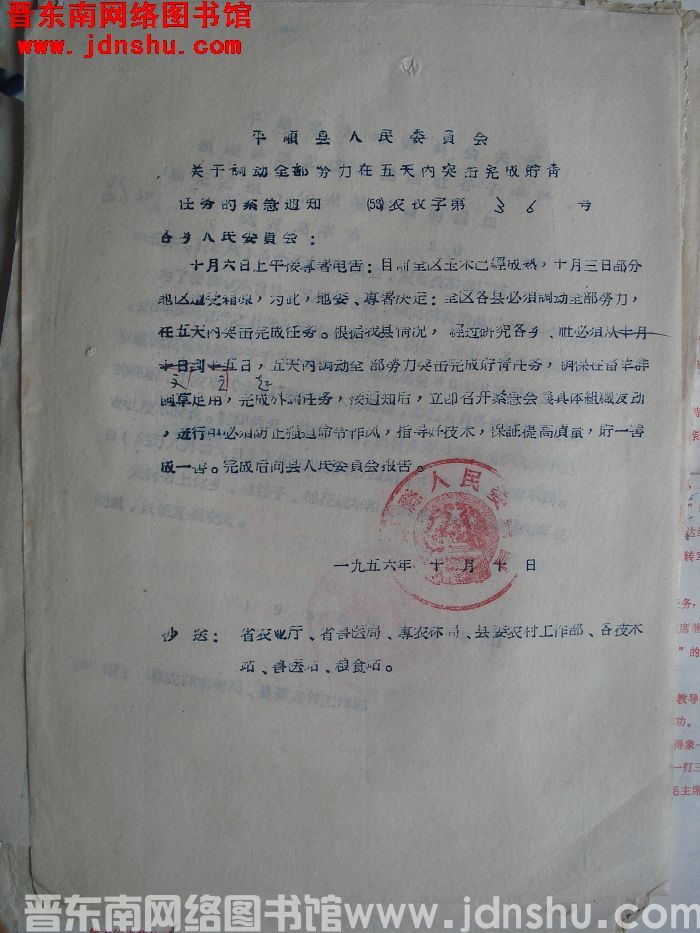 晋东南网络图书馆
www.jdnshu.com
平順县人民委員会
关于調动全部勞力在五天內突击完成貯青
任务的緊急通知 (56)农牧字第 36 号
各乡人民委員会：
十月六日上午接專署电告：目前全区玉米已經成熟，十月三日部分
地区遭受霜凍，为此，地委、專署决定：全区各县必須調动全部勞力，
在五天內突击完成任务。根据我县情况，經过研究各乡、社必須从十月
十日到十五日，五天內調动全部勞力突击完成貯青任务，确保牲畜羊群
飼草足用，完成外調任务，接通知后，立即召开緊急会議具体組織发动
，进行中必須防止强迫命令作风，指导好技术，保証提高質量，貯一窖
成一窖。完成后向县人民委員会报告。
一九五六年 十 月 十 日
抄 送：省农业厅、省兽医局、專农林局、县委农村工作部、各技术
站、兽医站、粮食站。
晋东南网络图书馆 www.jdnshu.com